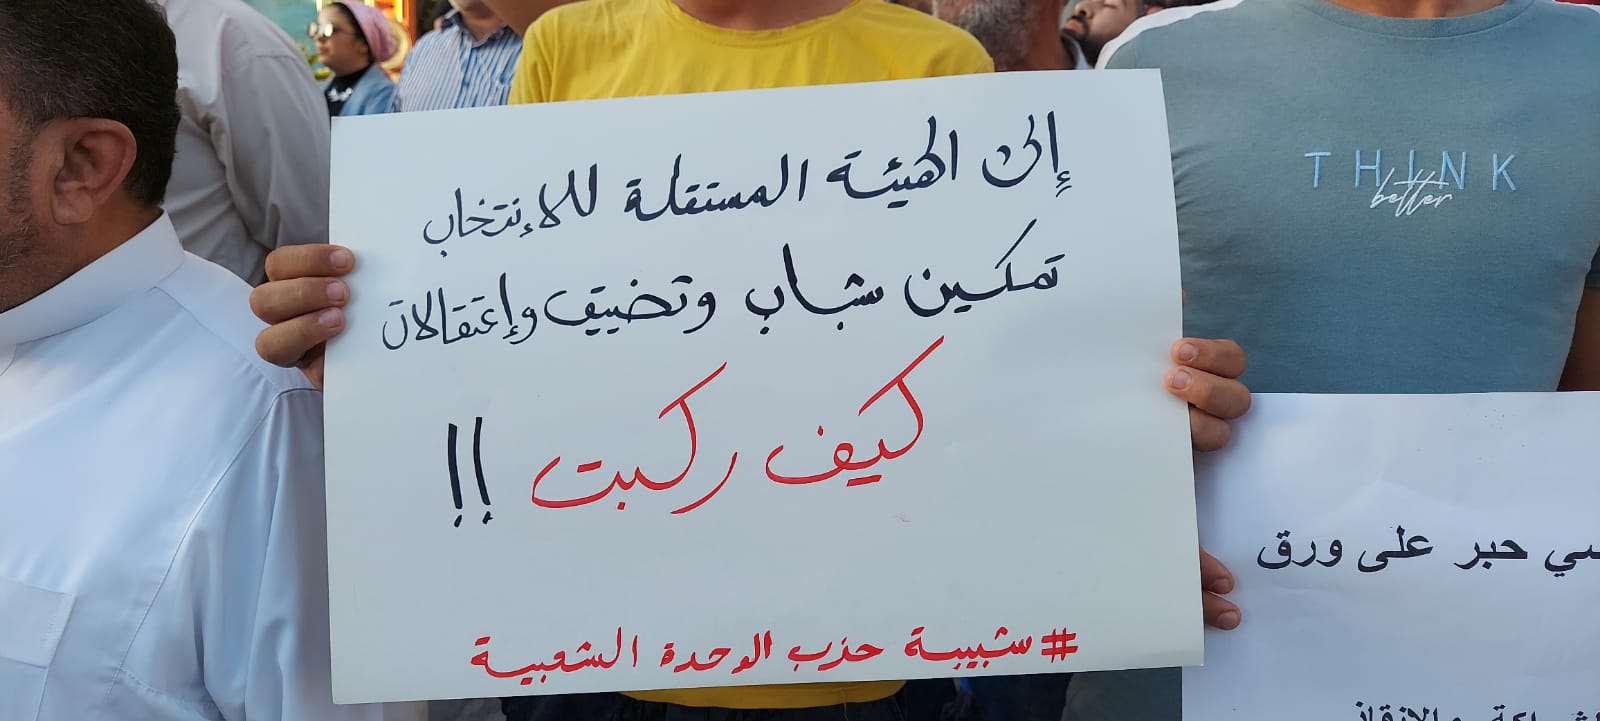 إلى الهيئة المستقلة للإنتخاب
تمكين شباب وتضييق وإعتقالات
كيف ركبت !!
#شبيبة حزب الوحدة الشعبية
THINK
better
حبر على ورق